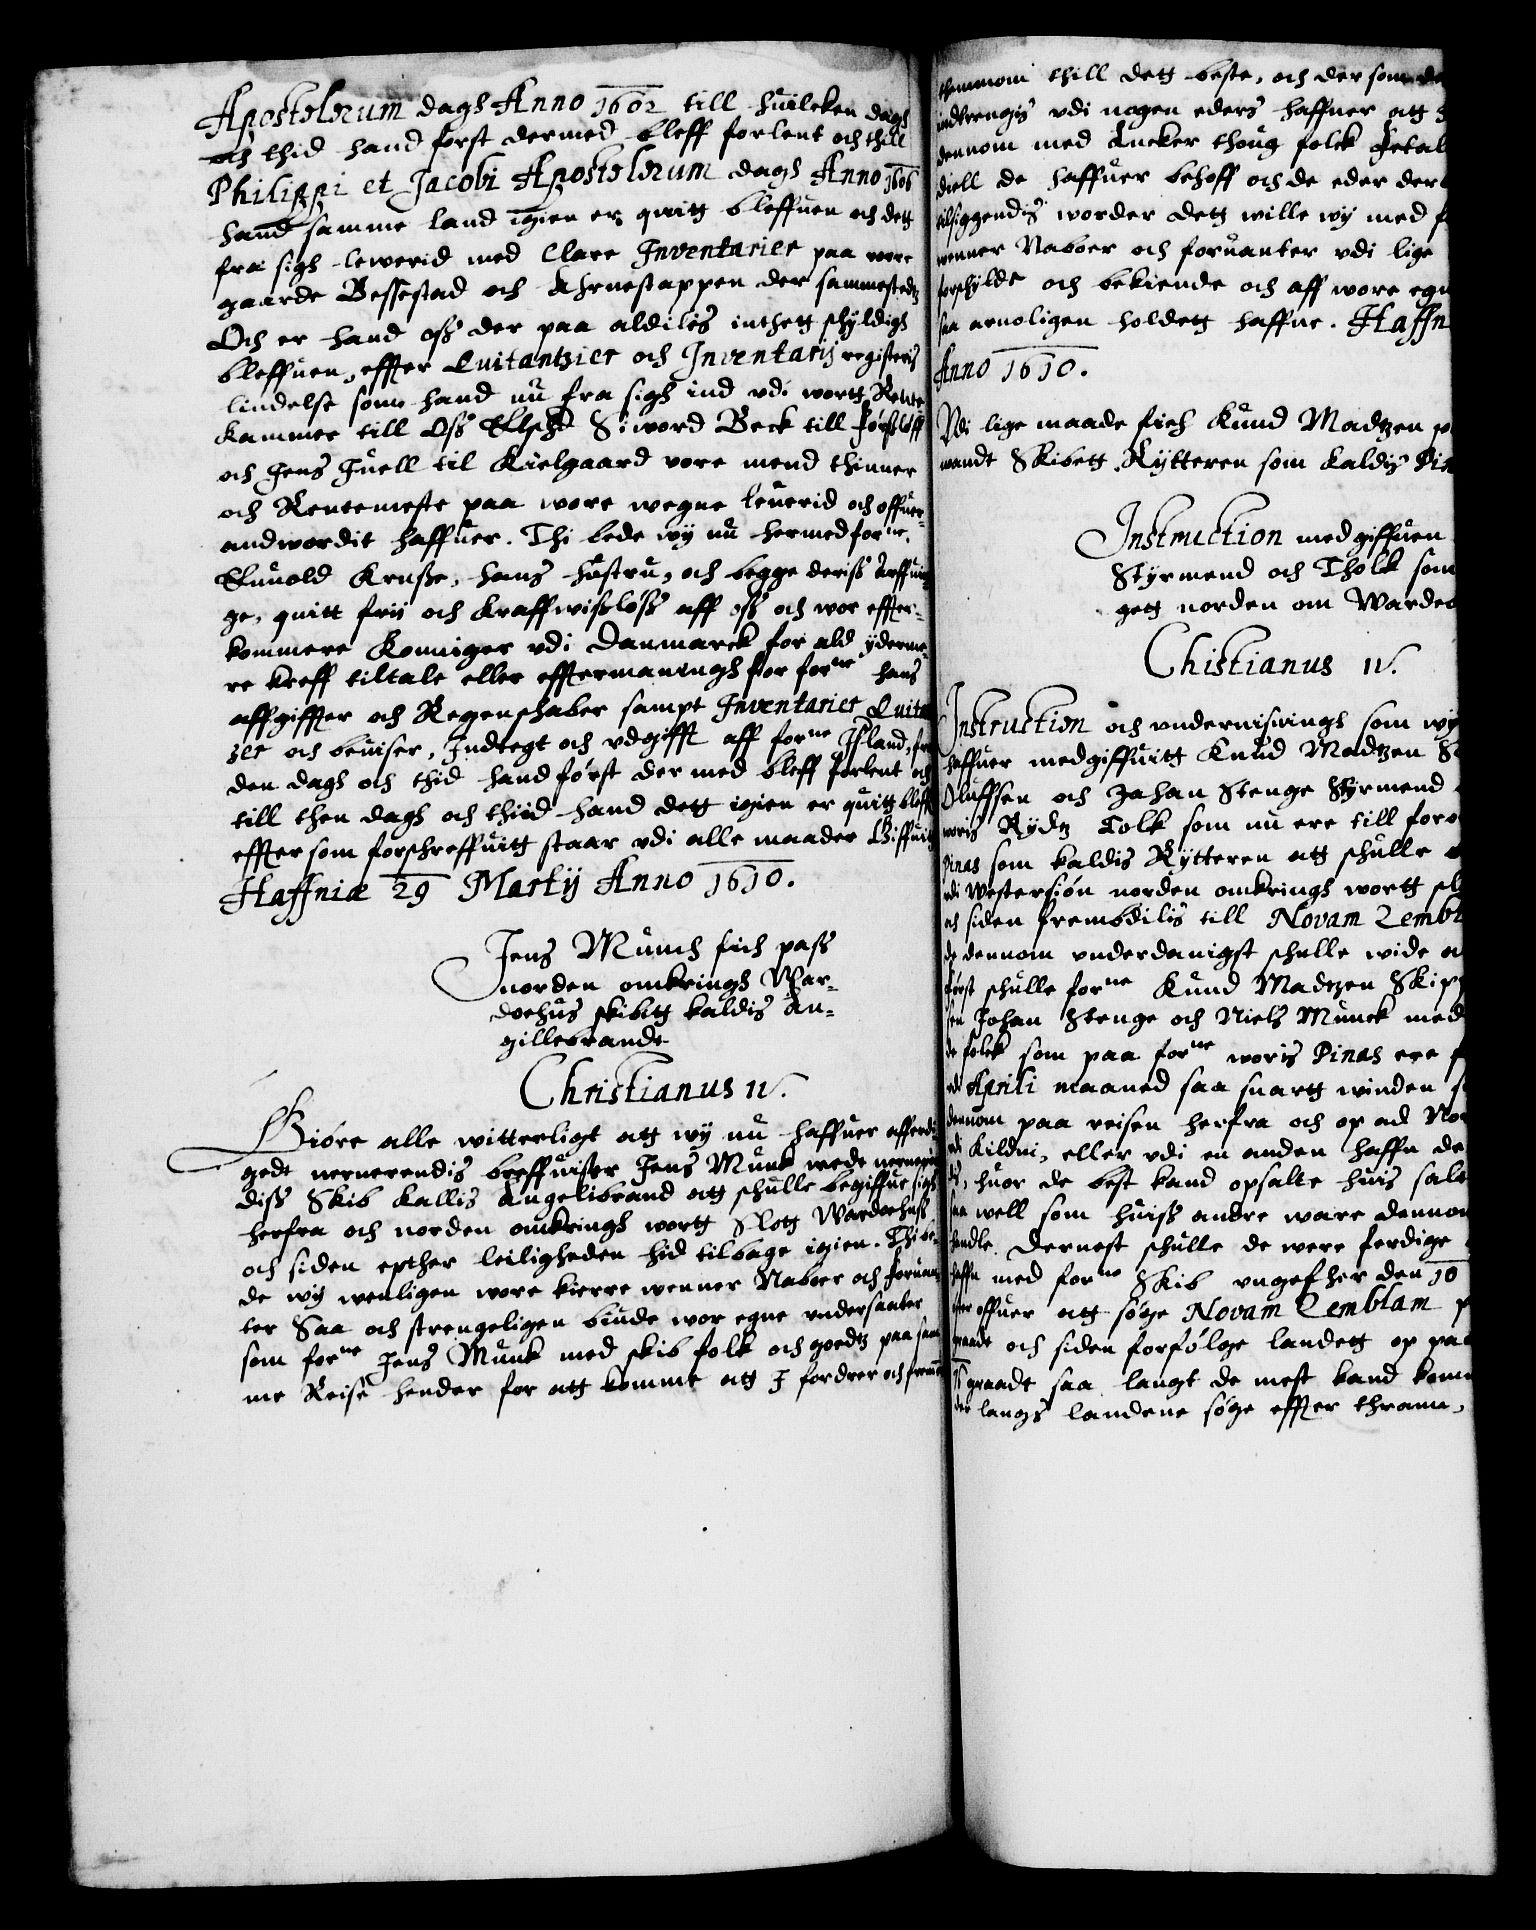 Apostolorum dags Anno 1602 till huilcken dags
och thid hand først dermed bleff forlent och thill
Philippi et Jacobi Apostolorum dags Anno 1606
hand samme land igien er quitt bleffuen och dett
fra sigh lewerid med Clare Inventarier paa wore
gaarde Bessestad och Ahrnestappen der sammestedtz
Och er hand oss der paa aldilis inthett schyldigh
bleffuen, effter Quitantzier och Inventarij registeris
lindelse som hand nu fra sigh ind vdi wortt Rente
Kammer till Oss Elsche Siword Beck till Førsløff
och Jens Juell til Kielgaard vore mend thinner
och Rentemeste paa wore wegne leuerid och offuer-
andwordit haffuer. Thi lede wy nu hermed forne.
Enuold Kruse, hans hustru, och begge deriss Arffuin
ge, quitt frij och kraffwisløss aff oss och wor effter-
kommere Konniger vdi Danmarck for ald yderme-
re kreff tiltale eller efftermaningh for forne hans
affgiffter och Regenschaber sampt Inventarier Quitan
zer och beuiser, Indtegt och vdgifft aff forne Island, fra
den dags och thid hand først der med bleff forlent och
till then dagh och thiid hand dett igien er quitt bleff
effter som forschreffuitt staar vdi alle maader Giffuitt
Haffniæ 29 Martij Anno 1610.
Jens Munch fich pass
norden omkringh War-
døehus skibitt kaldis An-
gillebrandt
Christianus IV.
Giøre alle witterligt att wy nu haffuer afferdi
gedt nernerendis breffuiser Jens Munk mede nerneren
diss Skib kallis Angelibrand att schulle begiffue sigh
herfra och norden omkringh wortt Slott Wardøehuss
och siden epther leiligheden hid tilbage igien. Thi be-
de wy wenligen wore kierre wenner Naboer och foruan
ter Saa och strengeligen biude wor egne vndersaatter
som forne Jens Munk med skib folk och goedtz paa sam
me Reise hender for att komme att I fordrer och frem
thennom thill dett beste, och der som de
indtrengis vdi nogen eders haffner att
dennom med Ancker thoug folck Fetal
diell de haffuer behoff och de eder der
tilsiggendis worder dett wille wy med
wenner Naboer och foruanter vdi lige
forschylde och bekiende och aff wore egn
saa aruoligen holdett haffue. Haffn
Anno 1610.
Vdi lige maade fich Knud Madtzen
nandt Skibett Rytteren som kaldis Pin
Instruction med giffuen
Styrmend och Tholk som
gett norden om Wardø
Chistianus IV.
Instruction och vnderuisningh som wy
haffuer medgiffuitt Knud Madtzen S
Oluffsen och Johan Stenge Styrmend
woris Rydtz Tolk som nu ere till foro
Pinas som kaldis Rytteren att schulle
vdi Westersiøn norden omkringh wortt sl
och siden frembdilis till Novam Zembl
de dennom vnderdanigst schulle wide a
først schulle forne Knud Madtzen Skipp
sen Johan Stenge och Niels Munck med
de folck som paa forne woris Pinas ere
vdi Aprili maaned saa snartt winden
dennom paa reisen herfra och op ad No
vdi Kildin, eller vdi en anden haffn de
di, huor de best kand opsalte huis salt
saa well som huiss andre ware dennom
handle. Dernest schulle de were ferdige
haffn med forne Skib vngefher den 10
ner offuer att søge Novam Zemblam p
graade och siden forfølge landett op paa
75 graadt saa langt de mest kand kom
der langs landene søge effter thrann,